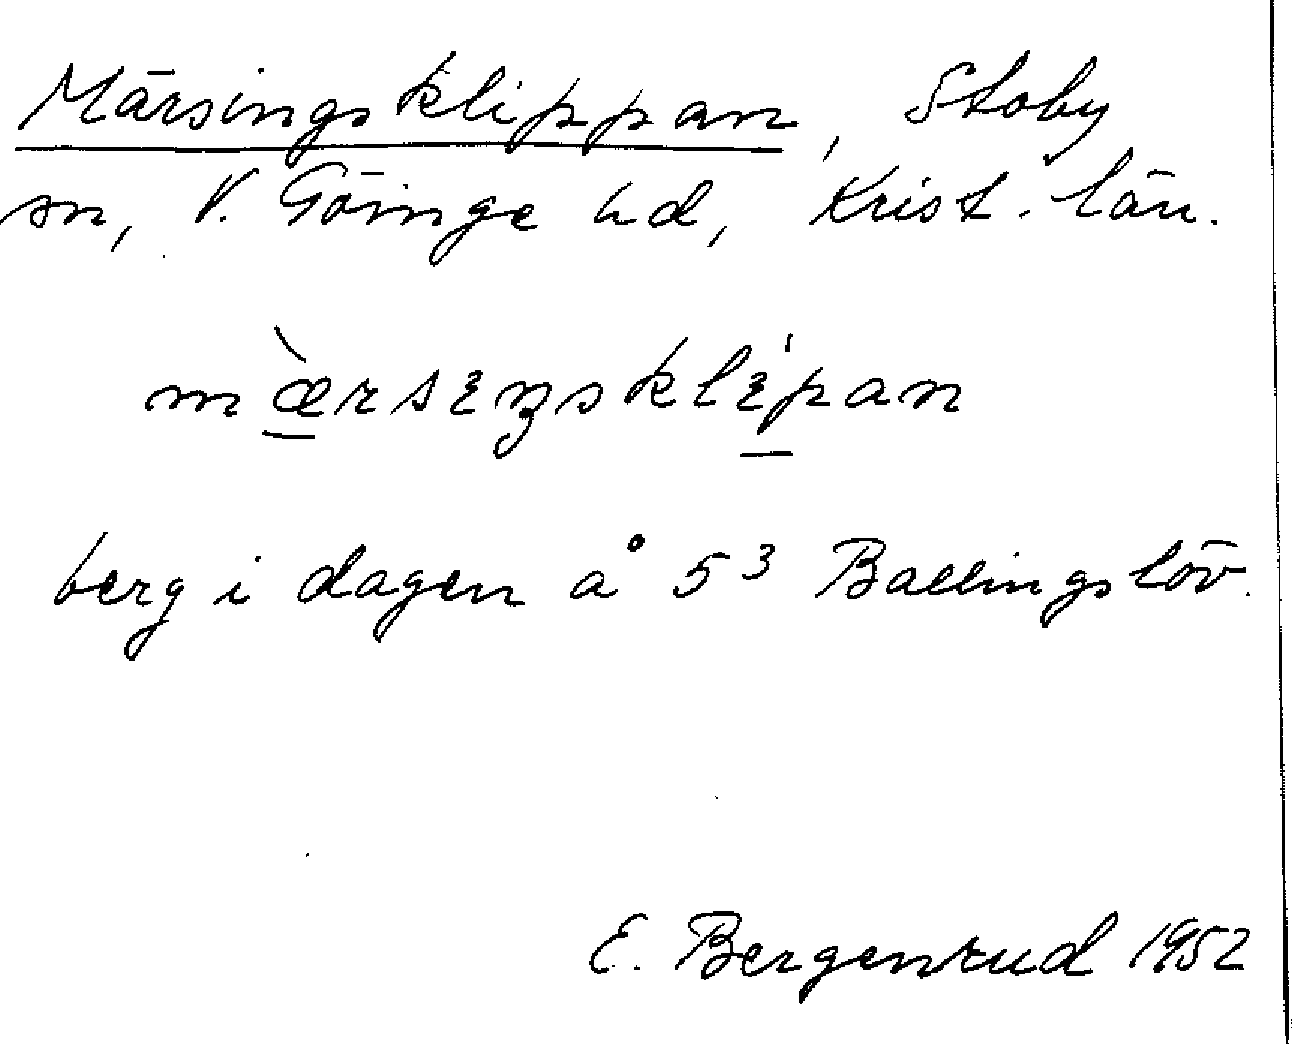 Märsingsklippan, Stoby
sn, V. Göinge hd, Krist. län.
mæ̀rsɛŋsklɛ́pan
berg i dagen å 5³ Ballingslöv.
E. Bergenrud 1952